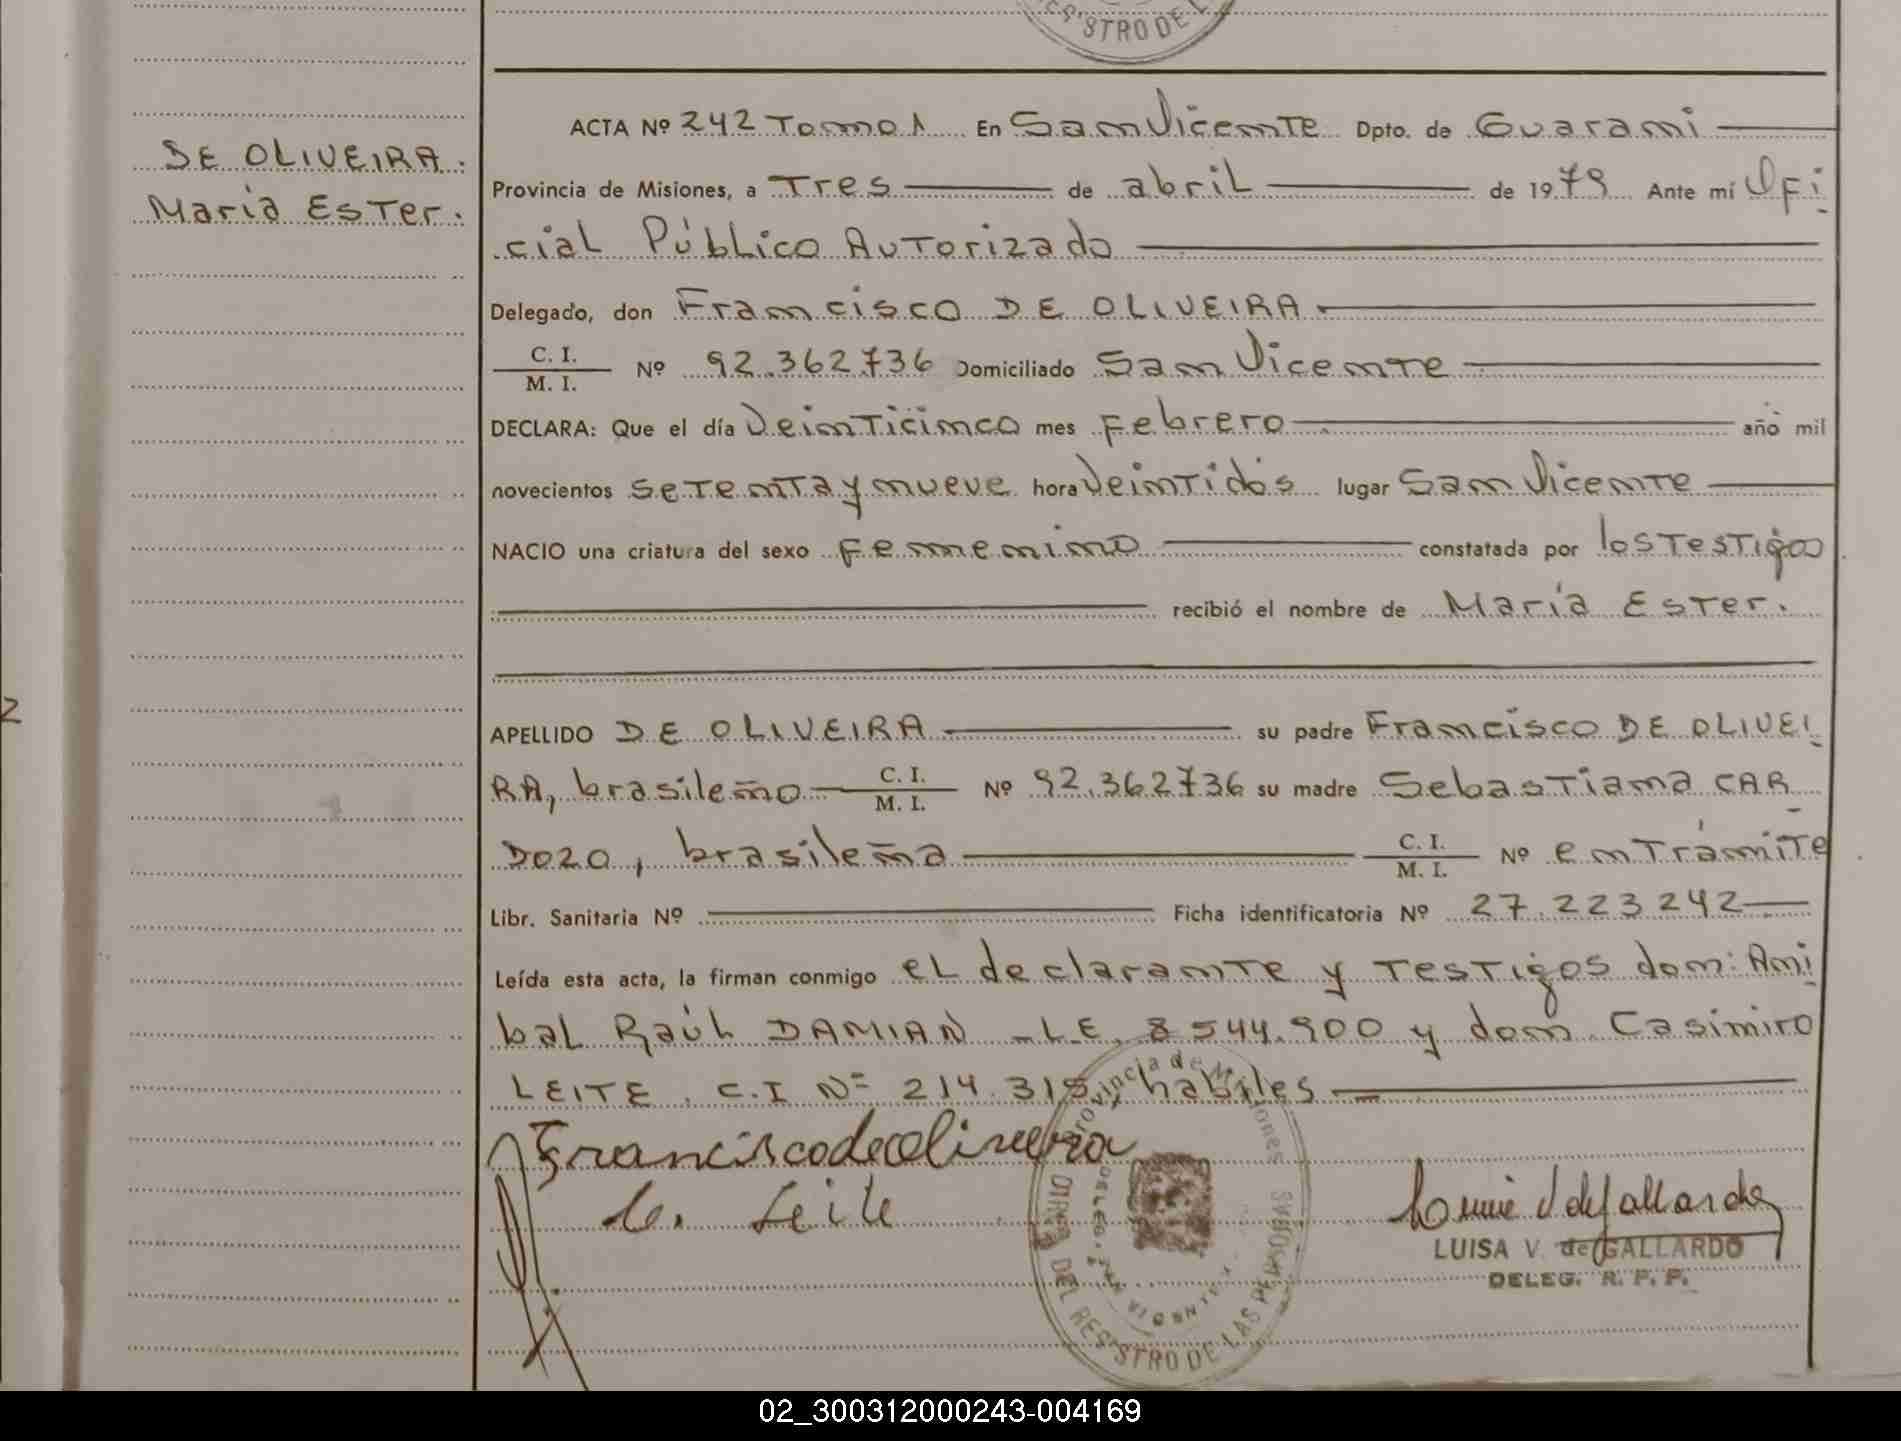 REGISTRO DE L
DE OLIVEIRA.
María Ester.
ACTA Nº 242 Tomo 1 En San Vicente Dpto. de Guaraní
Provincia de Misiones, a Tres de abril de 1979 Ante mí Ofi
cial Público Autorizado
Delegado, don Francisco DE OLIVEIRA
C. I.
M. I. Nº 92.362.736 Domiciliado San Vicente
DECLARA: Que el día Veinticinco mes Febrero año mil
novecientos setenta y nueve hora Veintidós lugar San Vicente
NACIO una criatura del sexo Femenino constatada por los Testigos
recibió el nombre de María Ester.
APELLIDO DE OLIVEIRA su padre Francisco DE OLIVEI
RA, brasileño C. I. M. I. Nº 92.362.736 su madre Sebastiana CAR
DOZO, brasileña C. I. M. I. Nº en Trámite
2
Libr. Sanitaria Nº Ficha identificatoria Nº 27.223.242
Leída esta acta, la firman conmigo el declarante y Testigos don: Aní
bal Raúl DAMIAN -L.E. 8544.900 y don Casimiro
LEITE. C.I Nº 214.315, habiles
Francisco de oliveira
C. Leite
Provincia de Misiones
DIREC. DEL REGISTRO DE LAS PERSONAS
DELEG. SAN VICENTE
LUISA V. de GALLARDO
DELEG. R. P. P.
02_300312000243-004169